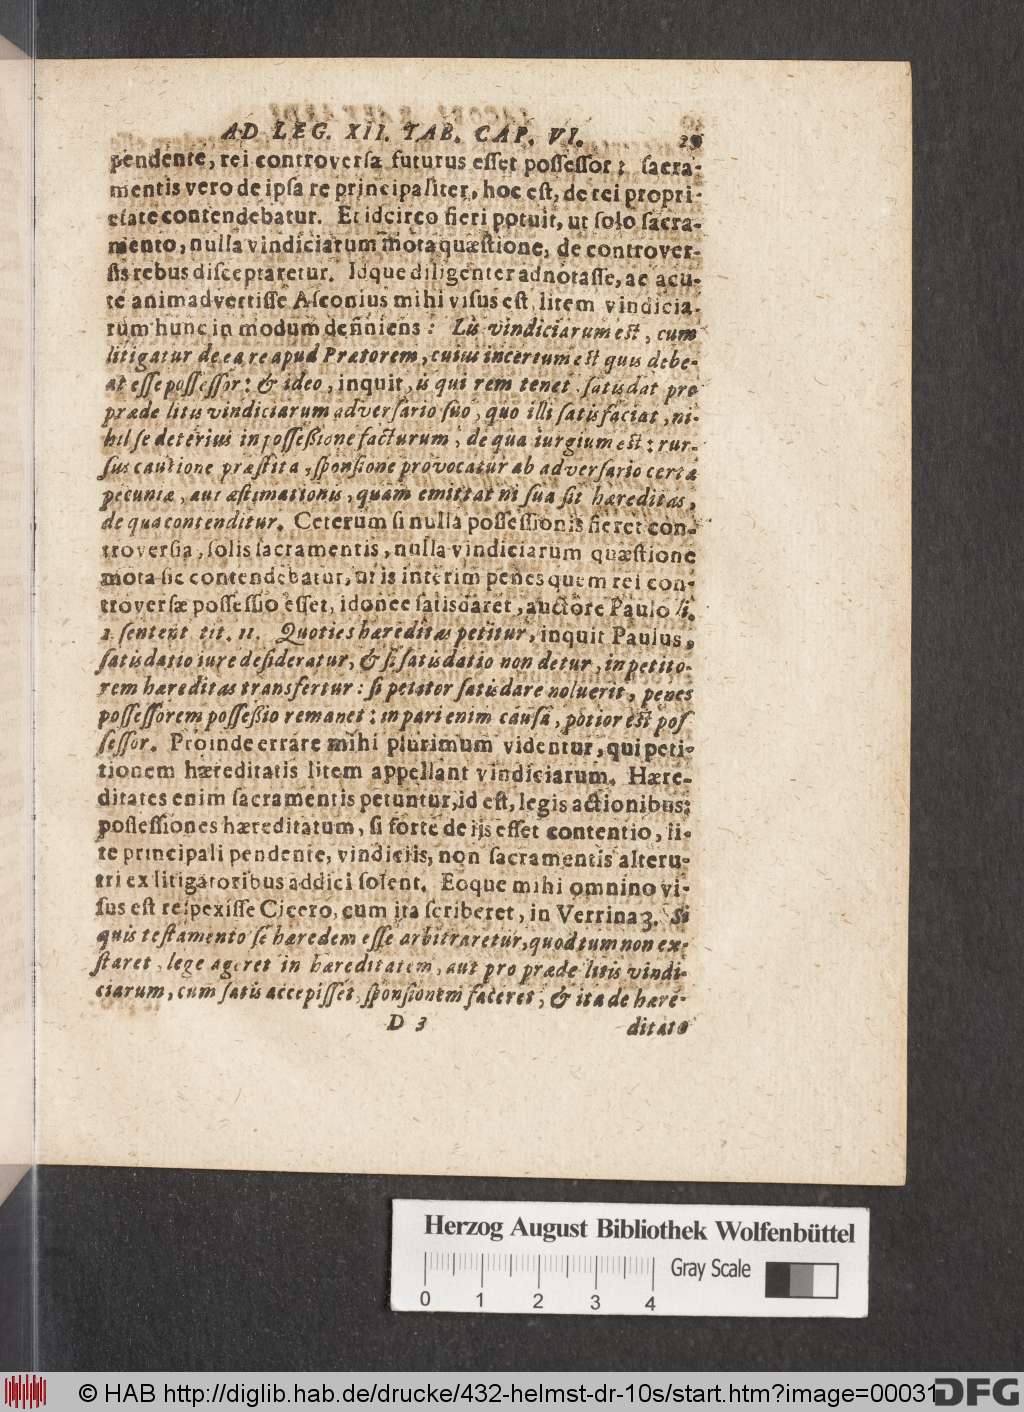 AD LEG. XII. TAB. CAP. VI. 29
pendente, rei controversa futurus esset possessor: sacra-
mentis vero de ipsa re principaliter, hoc est, de rei propri-
etate contendebatur. Et idcirco fieri potuit, ut solo sacra-
mento, nulla vindiciarum mota quæstione, de controver-
sis rebus disceptaretur. Idque diligenter adnotasse, ac acu-
te animadvertisse Asconius mihi visus est, litem vindicia-
rum hunc in modum definiens: Lis vindiciarum est, cum
litigatur de ea re apud Prætorem, cuius incertum est quis debe-
at esse possessor: & ideo, inquit, is qui rem tenet, satisdat pro
præde litis vindiciarum adversario suo, quo illi satisfaciat, ni-
hil se deterius in possessione facturum, de qua iurgium est: rur-
sus cautione præstita, sponsione provocatur ab adversario certæ
pecuniæ, aut æstimationis, quam emittat ni sua sit hæreditas,
de qua contenditur. Ceterum si nulla possessionis fieret con-
troversia, solis sacramentis, nulla vindiciarum quæstione
mota sic contendebatur, ut is interim penes quem rei con-
troversæ possessio esset, idonee satisdaret, auctore Paulo li.
1. sentent tit. 11. Quoties hæreditas petitur, inquit Paulus,
satisdatio iure desideratur, & si satisdatio non detur, in petito-
rem hæreditas transfertur: si petitor satisdare noluerit, penes
possessorem possessio remanet: in pari enim causa, potior est pos
sessor. Proinde errare mihi plurimum videntur, qui peti-
tionem hæreditatis litem appellant vindiciarum. Hære-
ditates enim sacramentis petuntur, id est, legis actionibus:
possessiones hæreditatum, si forte de ijs esset contentio, li-
te principali pendente, vindiciis, non sacramentis alteru-
tri ex litigatoribus addici solent. Eoque mihi omnino vi-
sus est respexisse Cicero, cum ita scriberet, in Verrina 3. Si
quis testamento se hæredem esse arbitraretur, quod tum non ex-
staret, lege ageret in hæreditatem, aut pro præde litis vindi-
ciarum, cum satis accepisset, sponsionem faceret, & ita de hære-
D 3 ditate
Herzog August Bibliothek Wolfenbüttel
Gray Scale
0 1 2 3 4
© HAB http://diglib.hab.de/drucke/432-helmst-dr-10s/start.htm?image=00031
DFG